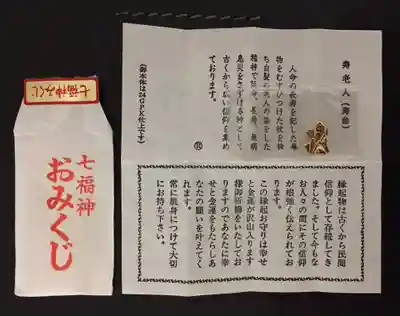 七福神みくじ
七福神
おみくじ
寿老人(寿命)
人命の長寿を記した巻
物をむすびつけた杖を持
ち白髪の老人の姿をした
福神で延命、長寿、無病
息災をさずける神として
古くから広い信仰を集め
ております。
(御本体は24GPK仕上です)
縁起物は古くから民間
信仰として存続してき
ました。そして今もな
お人々の間にその信仰
が根強く伝えられてお
ります。
この縁起お守りは幸せ
と金運が沢山入ります
様御祈願をいたしてお
りますのであなたに幸
せと金運をもたらしあ
なたの願いを叶えてく
れます。
常に肌身につけて大切
にお持ち下さい。